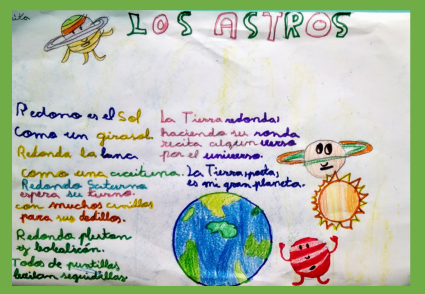 LOS ASTROS
Redono es el Sol
como un girasol.
Redonda la luna
como una aceituna.
Redondo Saturno
espera su turno.
con muchos anillos
para sus dedillos.
Redondo pluton
es bobalicón.
Todos de puntillas
bailan seguidillas
La Tierra redonda,
haciendo su ronda
recita algún verso
por el universo.
La Tierra, poeta,
es mi gran planeta.